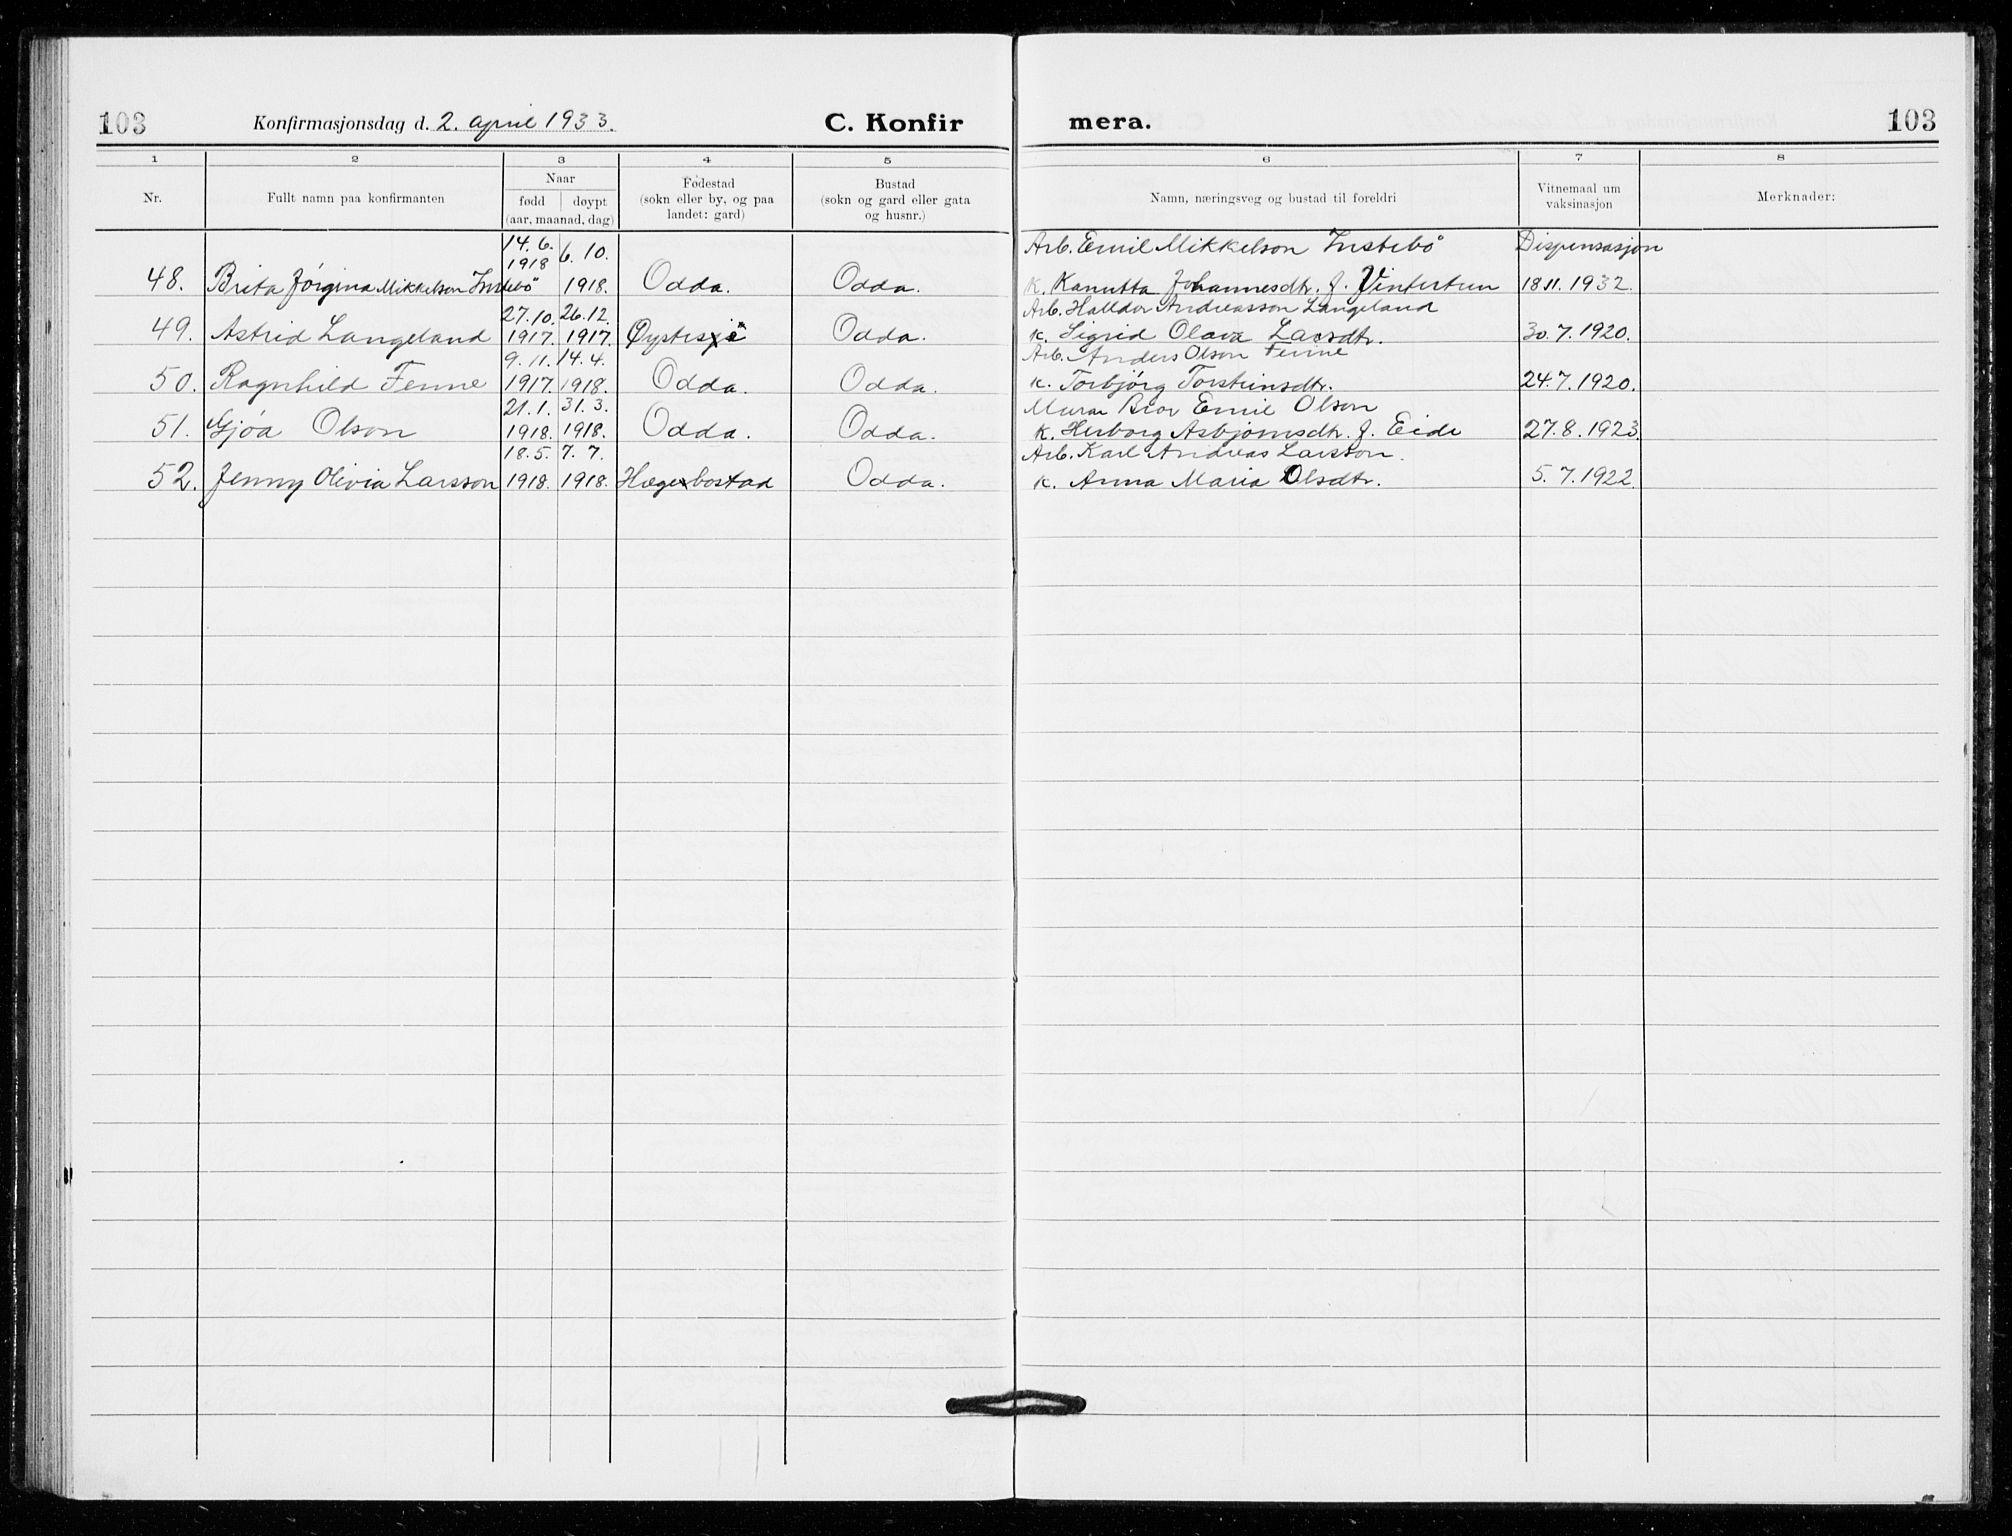 103 Konfirmasjonsdag d. 2. april 1933. C. Konfir mera. 103
1 2 3 4 5 6 7 8
Nr. Fullt namn paa konfirmanten Naar Fødestad Bustad Namn, næringsveg og bustad til foreldri Vitnemaal um Merknader:
fødd døypt (sokn eller by, og paa (sokn og gard eller gata vaksinasjon
(aar, maanad, dag) landet: gard) og husnr.)
14. 6. 6. 10. Arb. Emil Mikkelson Instebö Dispensasjon
48. Brita Jörgina Mikkelson Instebö 1918 1918. Odda. Odda. K. Kanutta Johannesdtr. f. Vintertun 18 11. 1932.
27. 10. 26. 12. Arb. Halldor Andreasson Langeland
49. Astrid Langeland 1917. 1917. Øystesje Odda. K. Sigrid Olava Larsdtr. 30. 7. 1920.
9. 11. 14. 4. Arb. Anders Olson Fenne
50. Ragnhild Fenne 1917. 1918. Odda. Odda. K. Torbjörg Torsteinsdtr. 24. 7. 1920.
21. 1. 31. 3. Murar Bror Emil Olson
51. Gjöa Olson 1918. 1918. Odda. Odda. K. Herborg Asbjørnsdtr. f. Eide 27. 8. 1923.
18. 5. 7. 7. Arb. Karl Andreas Larsson.
52. Jenny Olivia Larsson 1918. 1918. Hægebostad Odda. K. Anna Maria Olsdtr. 5. 7. 1922.